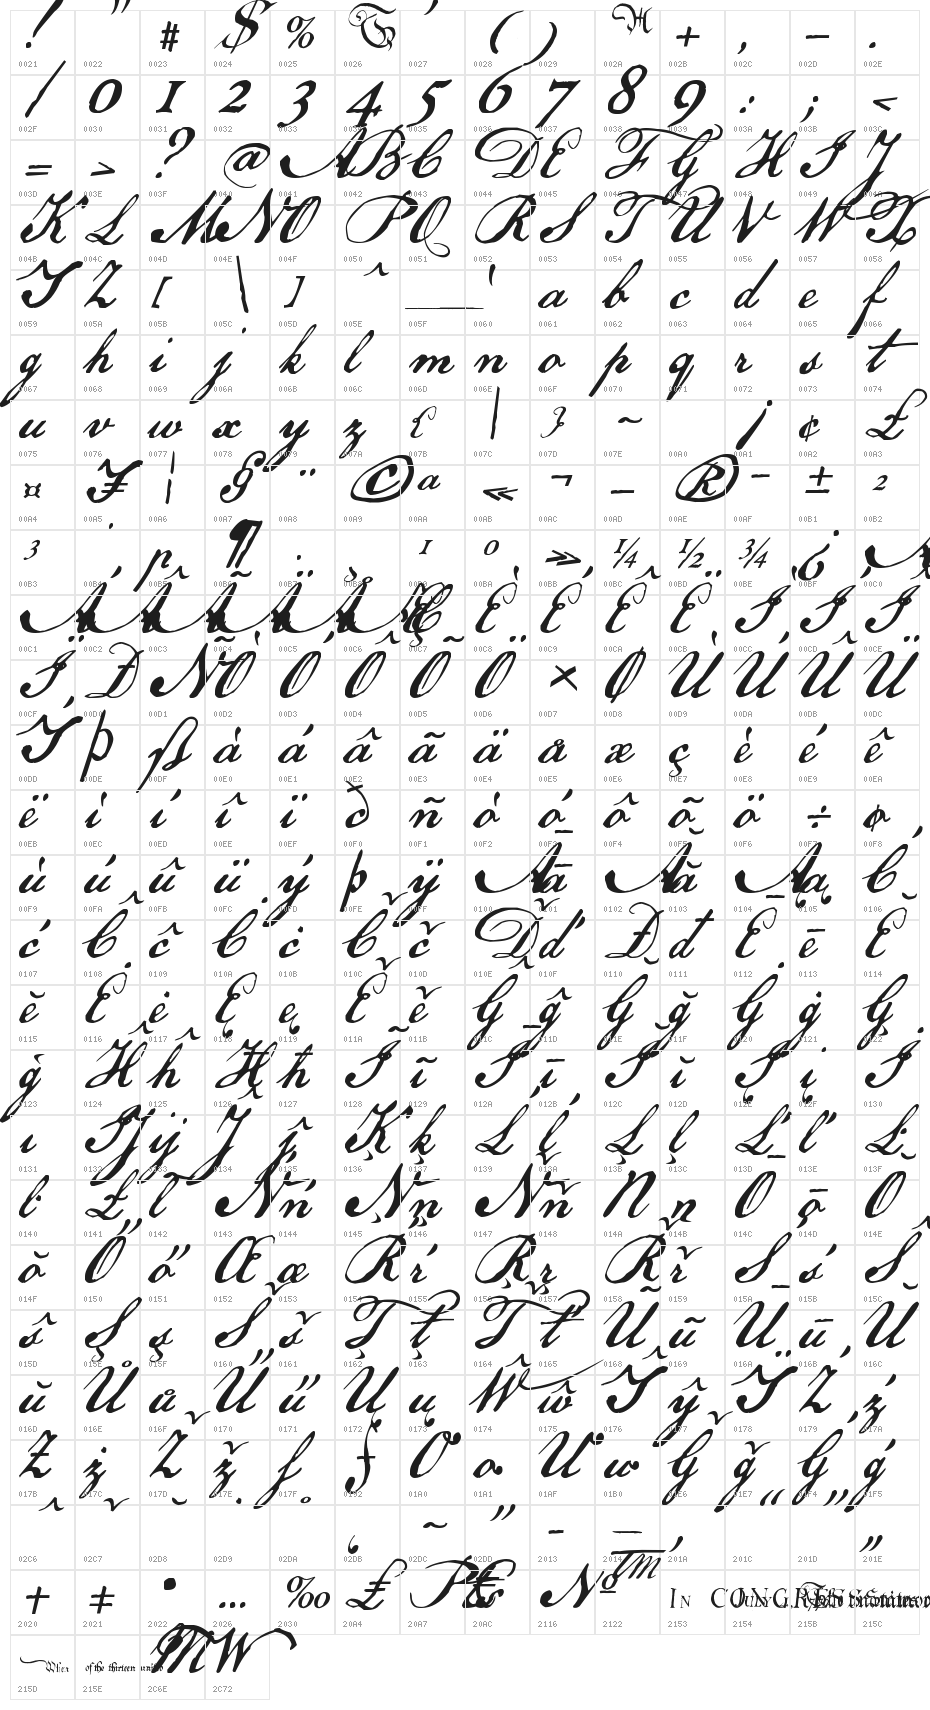 ! " # $ % & ' ( ) * + , - .
0021 0022 0023 0024 0025 0026 0027 0028 0029 002A 002B 002C 002D 002E
/ 0 1 2 3 4 5 6 7 8 9 : ; <
002F 0030 0031 0032 0033 0034 0035 0036 0037 0038 0039 003A 003B 003C
= > ? @ A B C D E F G H I J
003D 003E 003F 0040 0041 0042 0043 0044 0045 0046 0047 0048 0049 004A
K L M N O P Q R S T U V W X
004B 004C 004D 004E 004F 0050 0051 0052 0053 0054 0055 0056 0057 0058
Y Z [ \ ] ^ _ ` a b c d e f
0059 005A 005B 005C 005D 005E 005F 0060 0061 0062 0063 0064 0065 0066
g h i j k l m n o p q r s t
0067 0068 0069 006A 006B 006C 006D 006E 006F 0070 0071 0072 0073 0074
u v w x y z { | } ~ ¡ ¢ £
0075 0076 0077 0078 0079 007A 007B 007C 007D 007E 00A0 00A1 00A2 00A3
¤ ¥ ¦ § ¨ © ª « ¬ - ® ¯ ± ²
00A4 00A5 00A6 00A7 00A8 00A9 00AA 00AB 00AC 00AD 00AE 00AF 00B1 00B2
³ ´ µ ¶ · ¸ ¹ º » ¼ ½ ¾ ¿ À
00B3 00B4 00B5 00B6 00B7 00B8 00B9 00BA 00BB 00BC 00BD 00BE 00BF 00C0
Á Â Ã Ä Å Æ Ç È É Ê Ë Ì Í Î
00C1 00C2 00C3 00C4 00C5 00C6 00C7 00C8 00C9 00CA 00CB 00CC 00CD 00CE
Ï Ð Ñ Ò Ó Ô Õ Ö × Ø Ù Ú Û Ü
00CF 00D0 00D1 00D2 00D3 00D4 00D5 00D6 00D7 00D8 00D9 00DA 00DB 00DC
Ý Þ ß à á â ã ä å æ ç è é ê
00DD 00DE 00DF 00E0 00E1 00E2 00E3 00E4 00E5 00E6 00E7 00E8 00E9 00EA
ë ì í î ï ð ñ ò ó ô õ ö ÷ ø
00EB 00EC 00ED 00EE 00EF 00F0 00F1 00F2 00F3 00F4 00F5 00F6 00F7 00F8
ù ú û ü ý þ ÿ Ā ā Ă ă Ą ą Ć
00F9 00FA 00FB 00FC 00FD 00FE 00FF 0100 0101 0102 0103 0104 0105 0106
ć Ĉ ĉ Ċ ċ Č č Ď ď Đ đ Ē ē Ĕ
0107 0108 0109 010A 010B 010C 010D 010E 010F 0110 0111 0112 0113 0114
ĕ Ė ė Ę ę Ě ě Ĝ ĝ Ğ ğ Ġ ġ Ģ
0115 0116 0117 0118 0119 011A 011B 011C 011D 011E 011F 0120 0121 0122
ģ Ĥ ĥ Ħ ħ Ĩ ĩ Ī ī Ĭ ĭ Į į İ
0123 0124 0125 0126 0127 0128 0129 012A 012B 012C 012D 012E 012F 0130
ı Ĳ ĳ Ĵ ĵ Ķ ķ Ĺ ĺ Ļ ļ Ľ ľ Ŀ
0131 0132 0133 0134 0135 0136 0137 0139 013A 013B 013C 013D 013E 013F
ŀ Ł ł Ń ń Ņ ņ Ň ň Ŋ ŋ Ō ō Ŏ
0140 0141 0142 0143 0144 0145 0146 0147 0148 014A 014B 014C 014D 014E
ŏ Ő ő Œ œ Ŕ ŕ Ŗ ŗ Ř ř Ś ś Ŝ
014F 0150 0151 0152 0153 0154 0155 0156 0157 0158 0159 015A 015B 015C
ŝ Ş ş Š š Ţ ţ Ť ť Ũ ũ Ū ū Ŭ
015D 015E 015F 0160 0161 0162 0163 0164 0165 0168 0169 016A 016B 016C
ŭ Ů ů Ű ű Ų ų Ŵ ŵ Ŷ ŷ Ÿ Ź ź
016D 016E 016F 0170 0171 0172 0173 0174 0175 0176 0177 0178 0179 017A
Ż ż Ž ž ſ ƒ Ơ ơ Ư ư Ǧ ǧ Ǵ ǵ
017B 017C 017D 017E 017F 0192 01A0 01A1 01AF 01B0 01E6 01E7 01F4 01F5
ˆ ˇ ˘ ˙ ˚ ˛ ˜ ˝ – — ‚ “ ” „
02C6 02C7 02D8 02D9 02DA 02DB 02DC 02DD 2013 2014 201A 201C 201D 201E
† ‡ • … ‰ ₤ ₧ € № ™ IN CONGRESS
2020 2021 2022 2026 2030 20A4 20A7 20AC 2116 2122 2153 2154 215B 215C
When of the thirteen united M W
215D 215E 2C6E 2C72